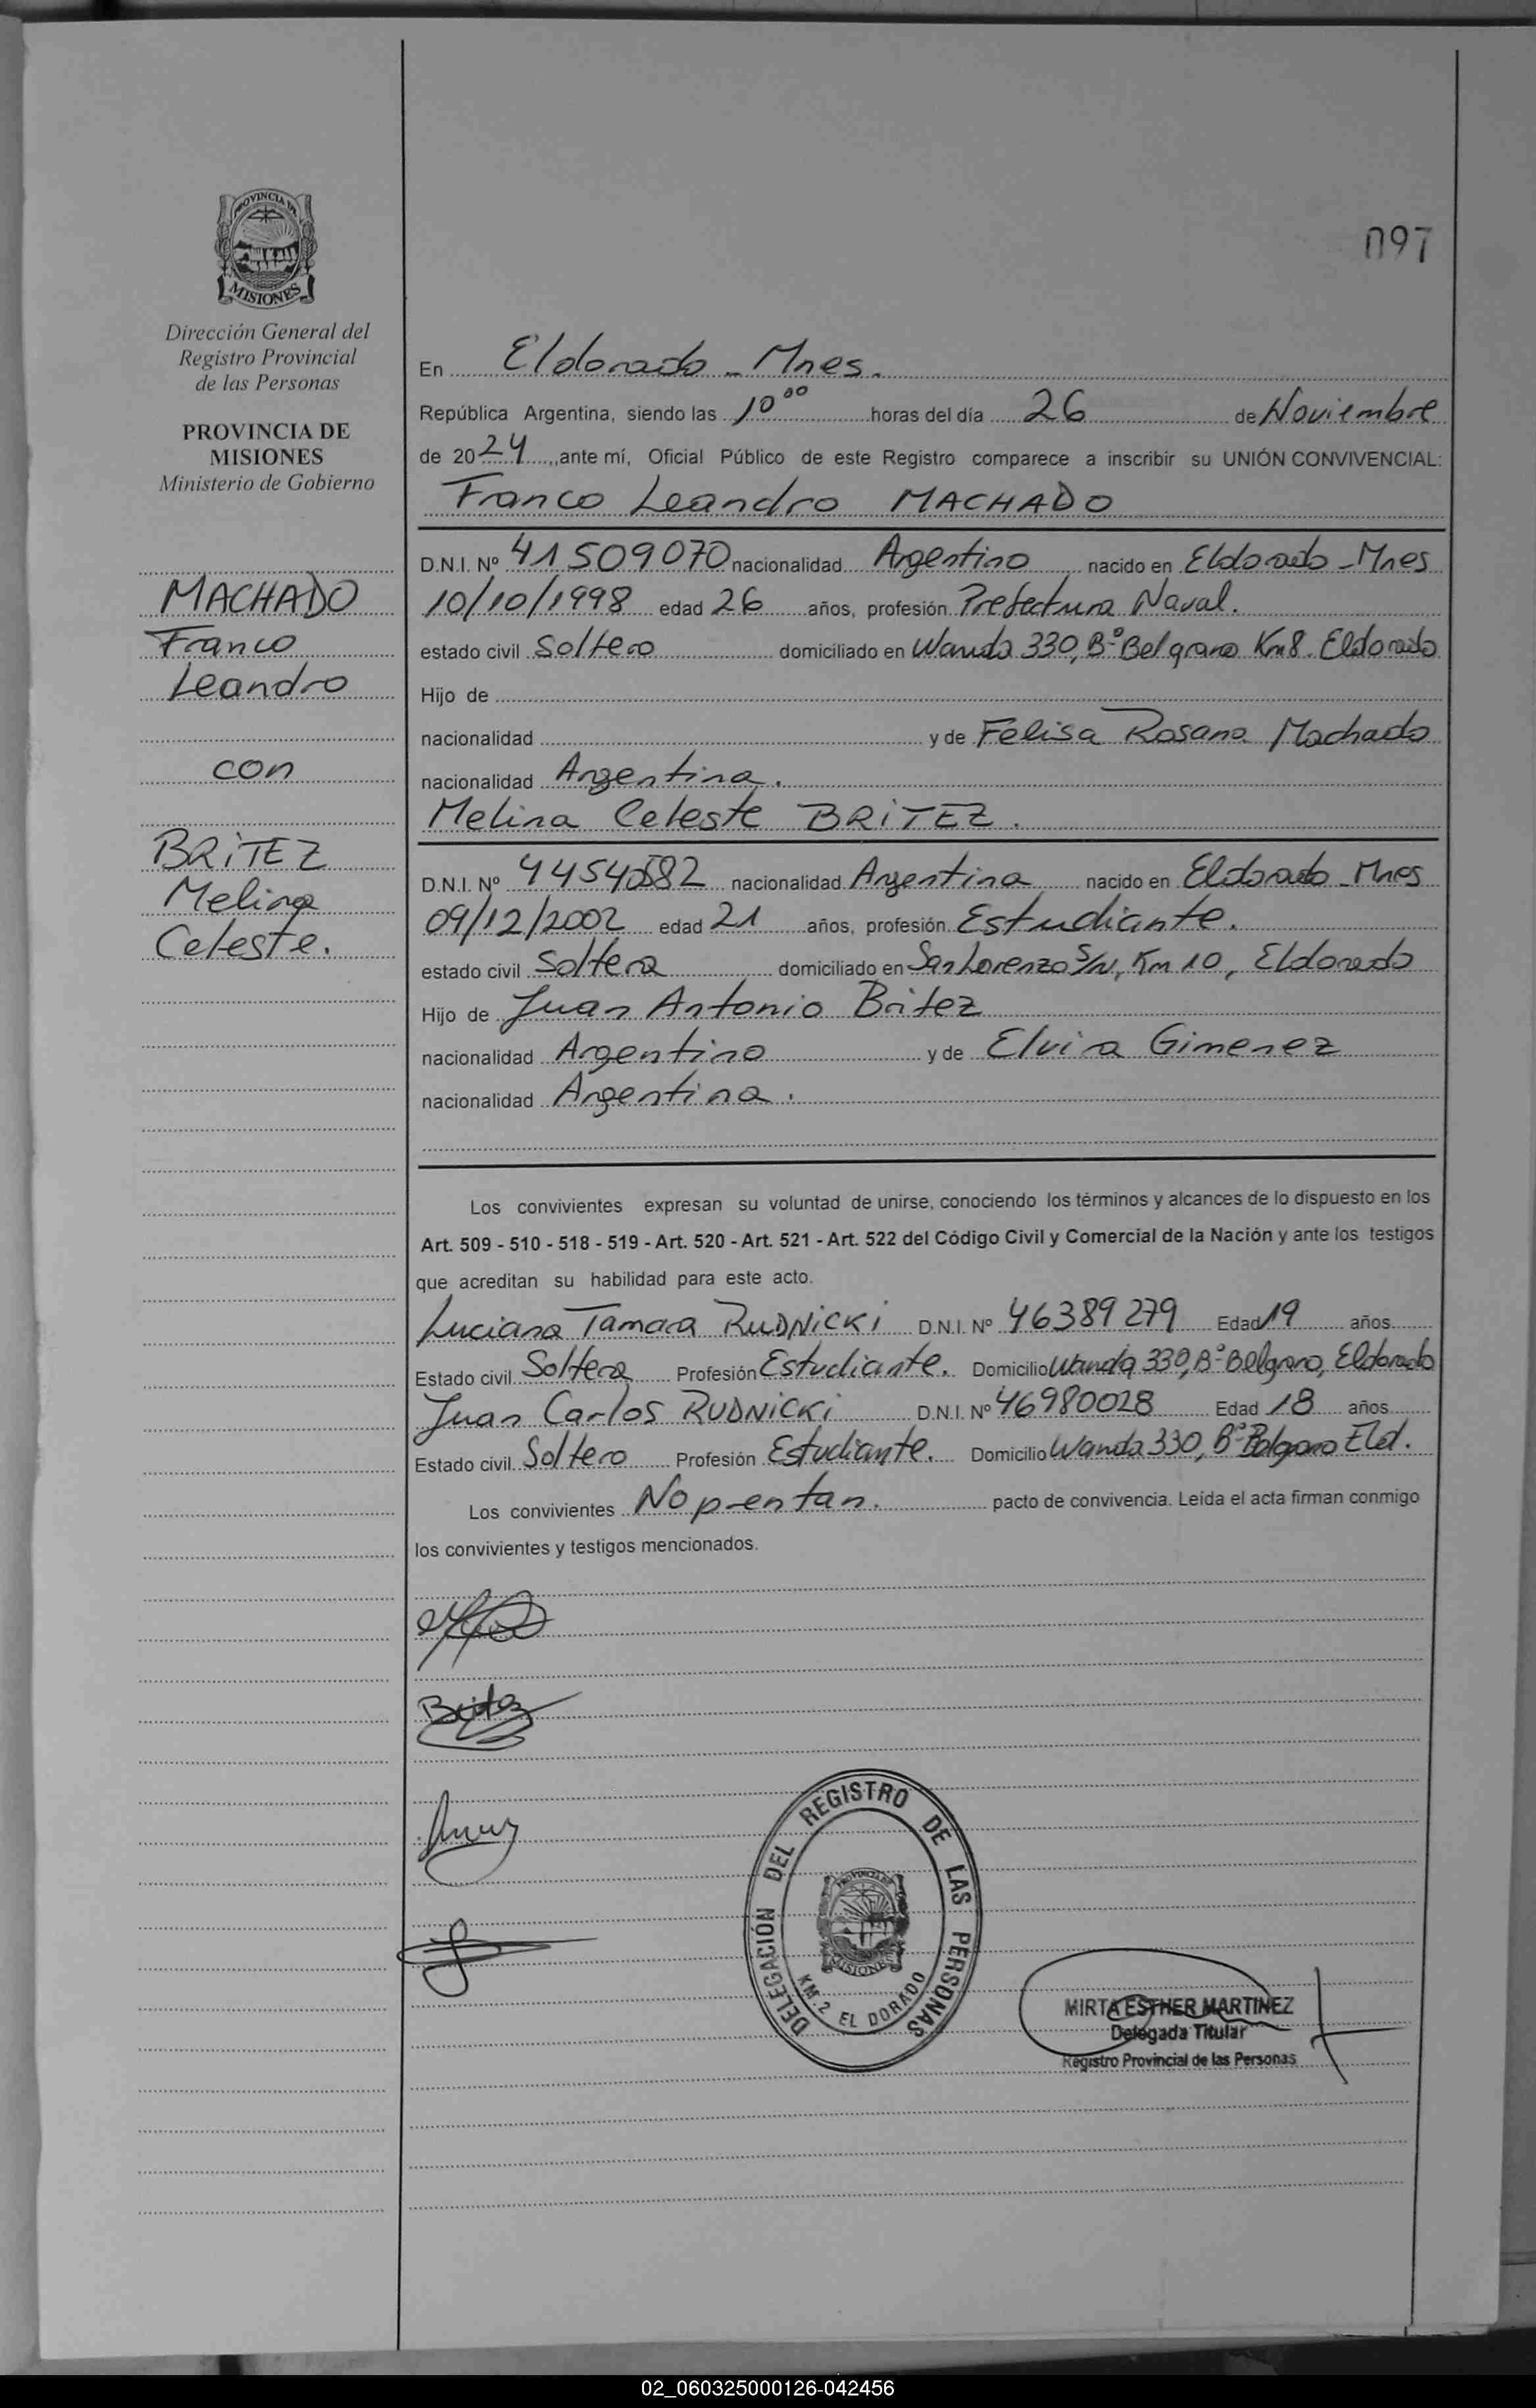 097
PROVINCIA DE
MISIONES
Dirección General del
Registro Provincial
de las Personas
PROVINCIA DE
MISIONES
Ministerio de Gobierno
MACHADO
Franco
Leandro
con
BRITEZ
Melina
Celeste.
En Eldorado - Mnes.
República Argentina, siendo las 10⁰⁰ horas del día 26 de Noviembre
de 2024, ante mí, Oficial Público de este Registro comparece a inscribir su UNIÓN CONVIVENCIAL:
Franco Leandro MACHADO
D.N.I. Nº 41509070 nacionalidad Argentino nacido en Eldorado - Mnes
10/10/1998 edad 26 años, profesión Prefectura Naval.
estado civil Soltero domiciliado en Wanda 330, Bº Belgrano Km 8. Eldorado
Hijo de
nacionalidad y de Felisa Rosana Machado
nacionalidad Argentina.
Melina Celeste BRITEZ.
D.N.I. Nº 44540582 nacionalidad Argentina nacido en Eldorado - Mnes
09/12/2002 edad 21 años, profesión Estudiante.
estado civil Soltera domiciliado en San Lorenzo S/N, Km 10, Eldorado
Hijo de Juan Antonio Britez
nacionalidad Argentino y de Elvira Gimenez
nacionalidad Argentina.
Los convivientes expresan su voluntad de unirse, conociendo los términos y alcances de lo dispuesto en los
Art. 509 - 510 - 518 - 519 - Art. 520 - Art. 521 - Art. 522 del Código Civil y Comercial de la Nación y ante los testigos
que acreditan su habilidad para este acto.
Luciana Tamara RUDNICKI D.N.I. Nº 46389279 Edad 19 años
Estado civil Soltera Profesión Estudiante. Domicilio Wanda 330, Bº Belgrano, Eldorado
Juan Carlos RUDNICKI D.N.I. Nº 46980028 Edad 18 años
Estado civil Soltero Profesión Estudiante. Domicilio Wanda 330, Bº Belgrano Eld.
Los convivientes No prentan. pacto de convivencia. Leída el acta firman conmigo
los convivientes y testigos mencionados.
Britez
DELEGACIÓN DEL REGISTRO DE LAS PERSONAS
PROVINCIA DE
MISIONES
KM. 2 EL DORADO
MIRTA ESTHER MARTINEZ
Delegada Titular
Registro Provincial de las Personas
02_060325000126-042456